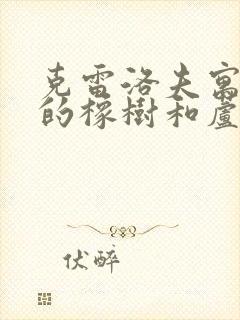 克雷洛夫寓
的橡樹和蘆
伏醉